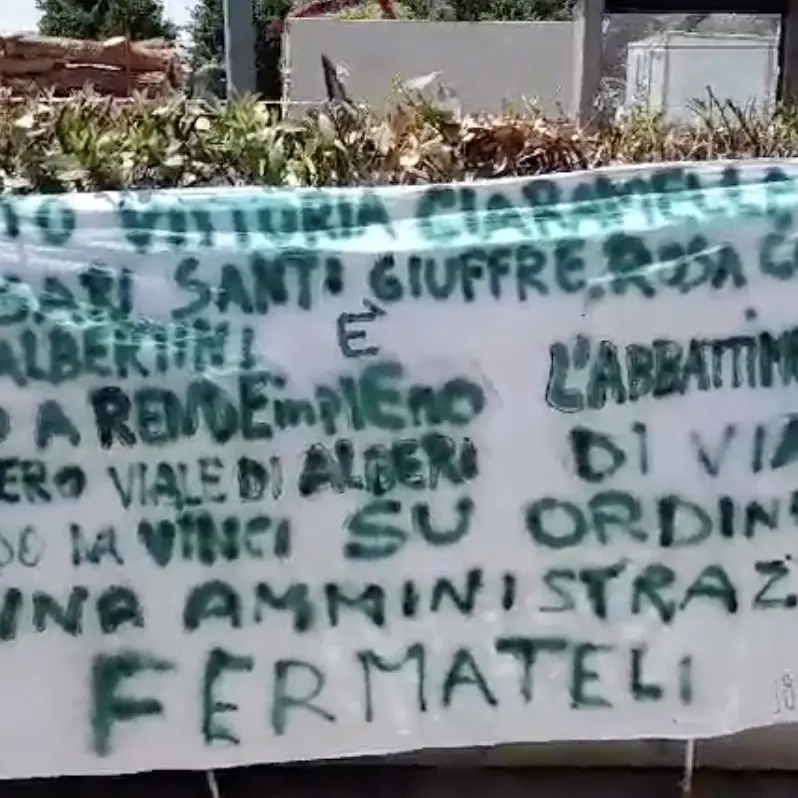 TO VITTORIA CIARAMELLA
BARI SANTI GIUFFRE, ROSA
ALBERTINI È L'ABBATTIM
O A RENDE in pIEnO
ERO VIALE DI ALBERI DI VIA
DO DA VINCI SU ORDIN
UNA AMMINISTRAZ
FERMATELI